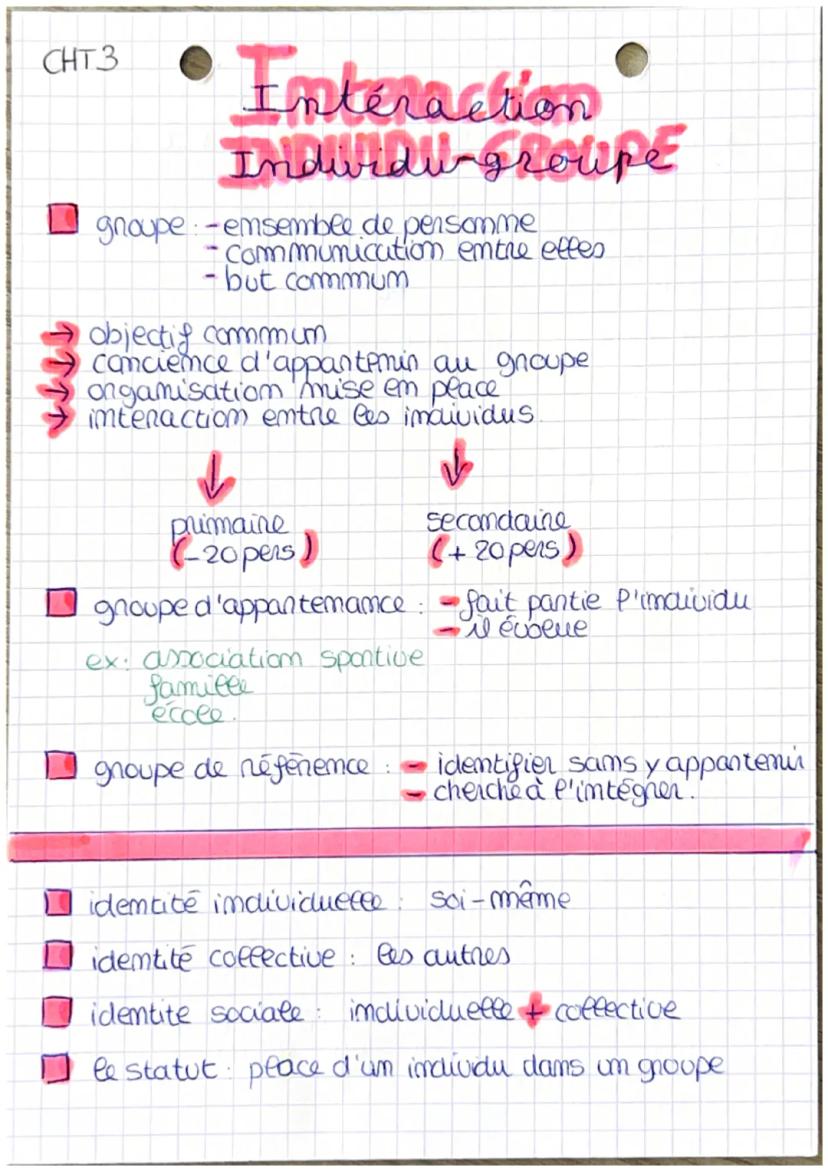 CHT 3
Intéraction
Individu-groupe
groupe : - ensemble de personne
- communication entre elles
- but commun
→ objectif commun
→ concience d'appartenir au groupe
→ organisation mise en place
→ interaction entre les individus
primaire secondaire
(-20 pers) (+ 20 pers)
groupe d'appartenance : - fait partie l'individu
- il évolue
ex: association sportive
famille
école.
groupe de référence : - identifier sans y appartenir
- cherche à l'intégrer.
identité individuelle : soi-même
identité collective : les autres
identite sociale : individuelle + collective
le statut : place d'un individu dans un groupe